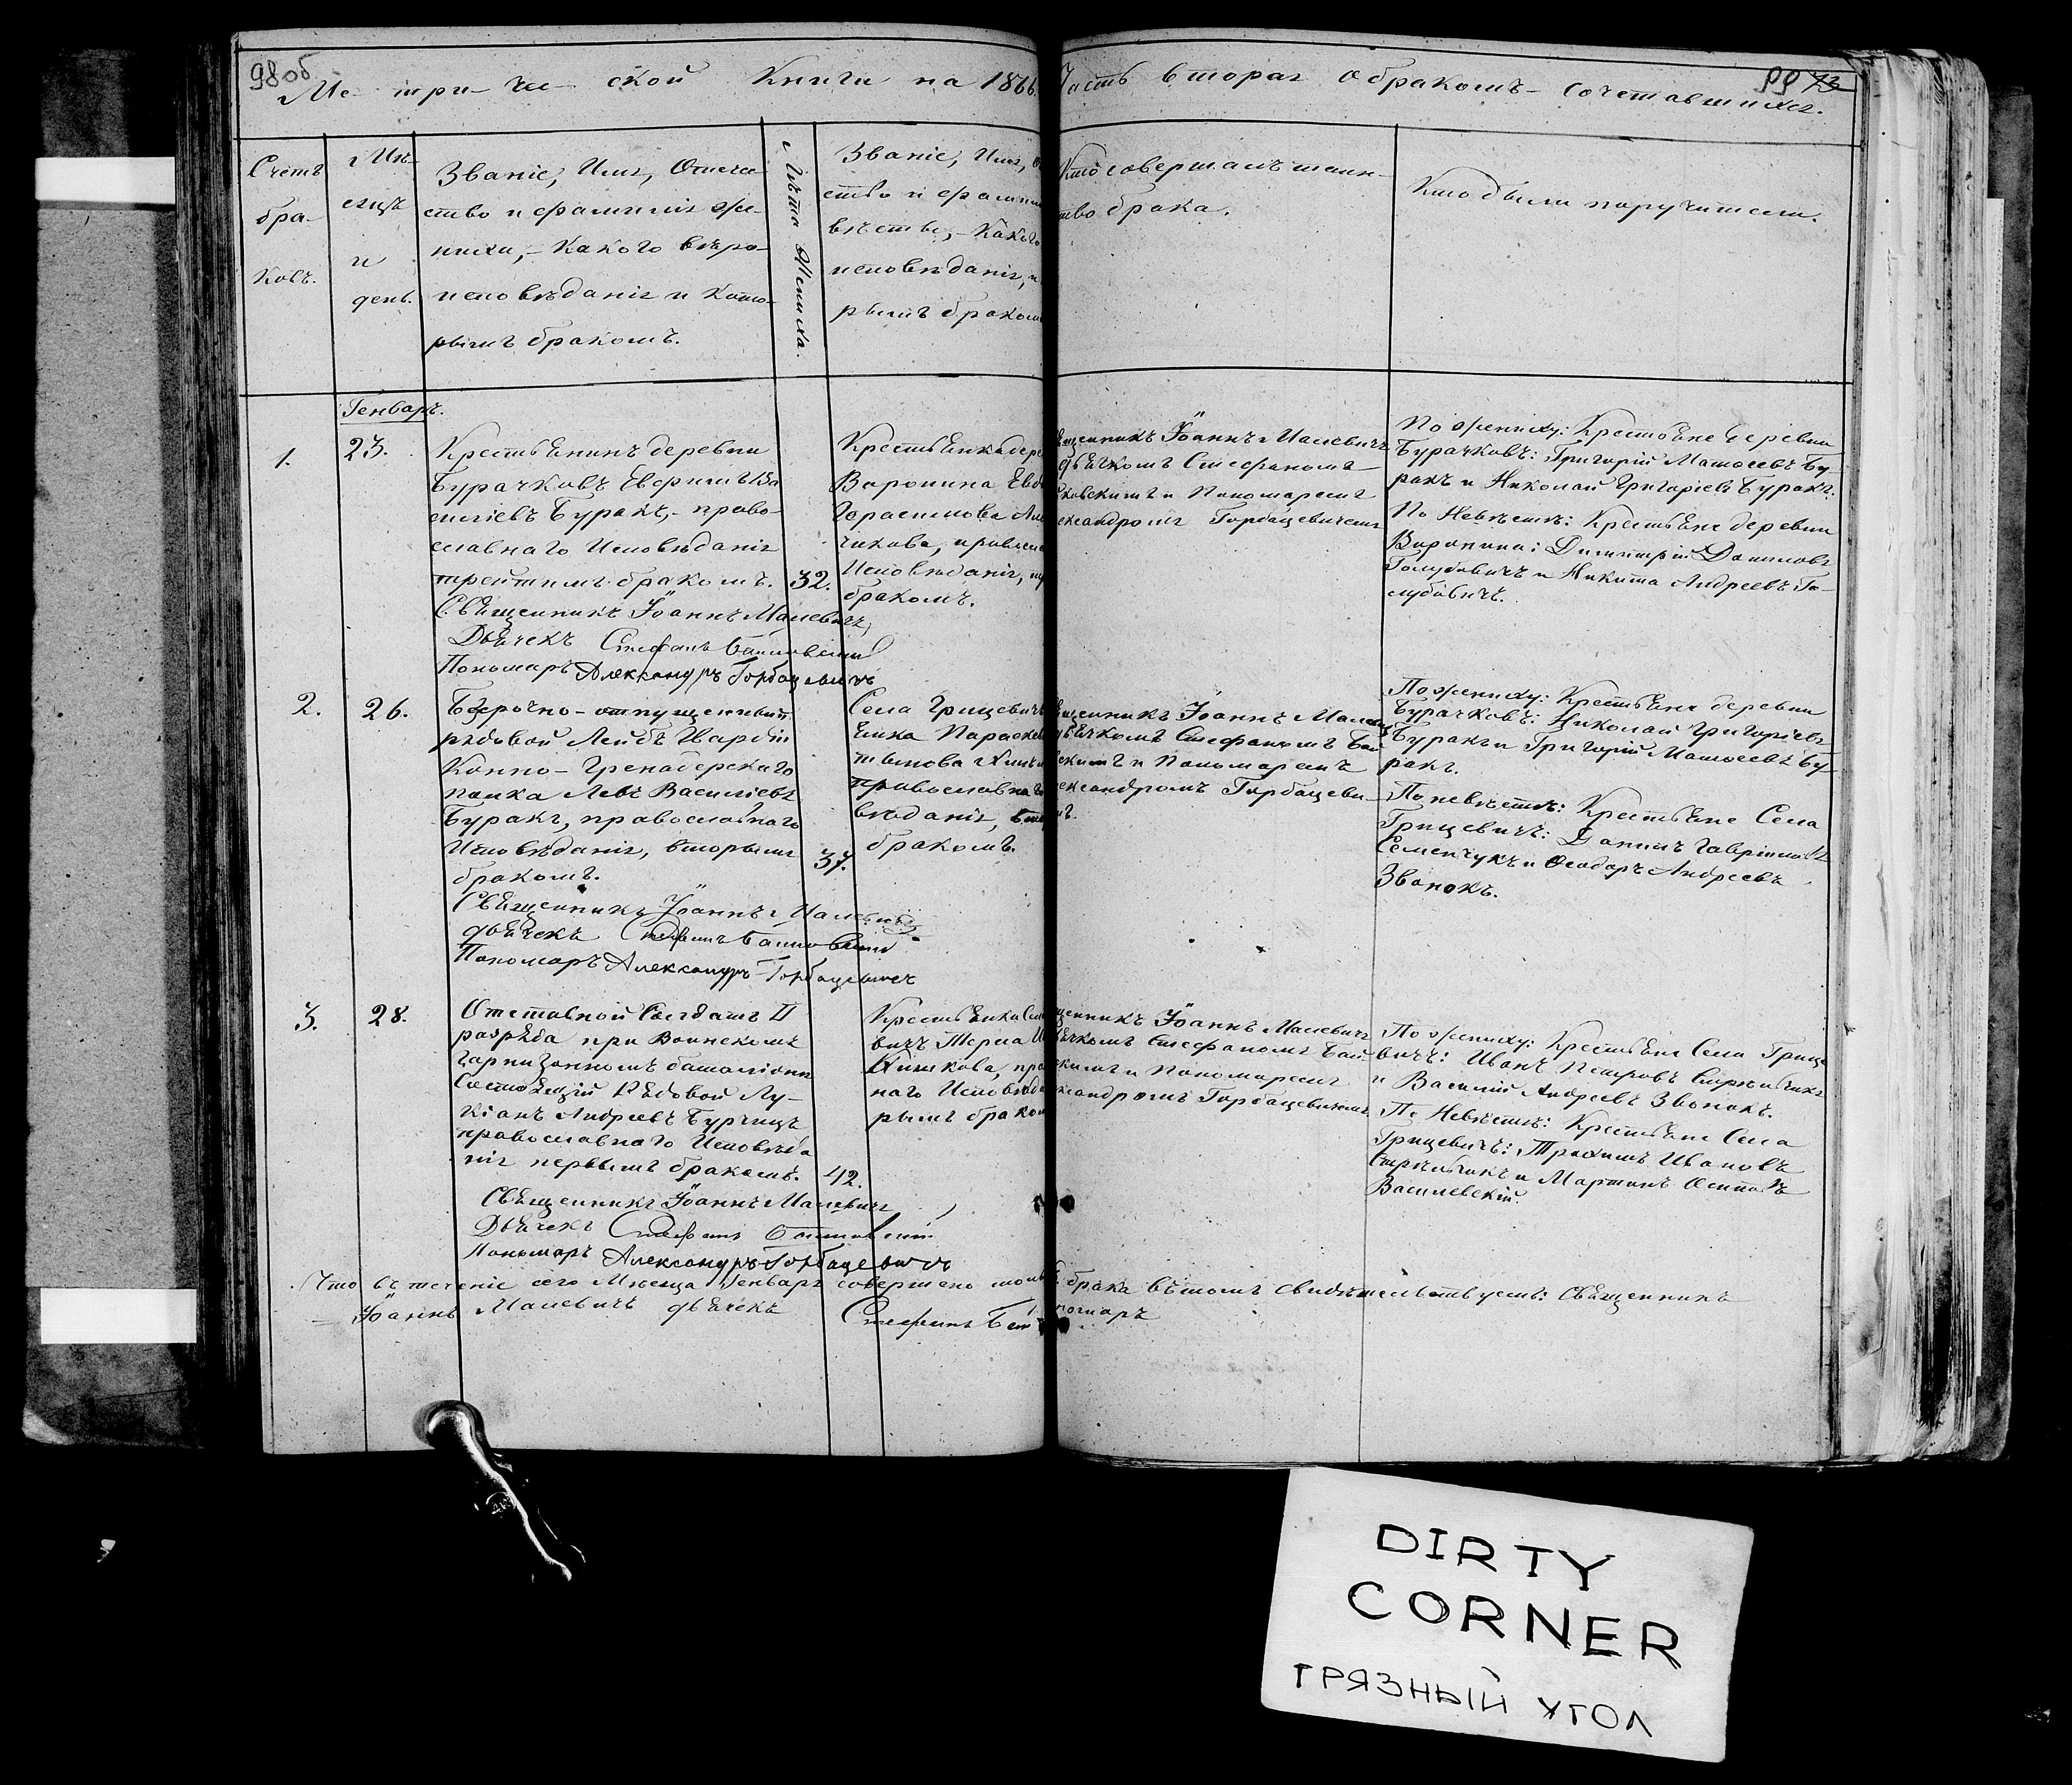 98 об
Ме- три- че- ской Книги на 1866.
Часть вторая о бракомъ- сочетавшихся.
99 73
Счетъ
бра-
ковъ.
Мѣ-
сяцъ
и
день.
Званіе, Имя, Отече-
ство и фамилія же-
ниха,- какого вѣро-
исповѣданія и кото-
рымъ бракомъ.
Лѣта Жениха.
Званіе, Имя,
ство и фамил
вѣсты,- Какого
исповѣданія, и
рымъ бракомъ
Кто совершалъ таин-
ство брака.
Кто были поручители.
Генваръ.
1.
23.
Крестьянинъ деревни
Бурачковъ Евфимъ Ва
силіевъ Буракъ,- право-
славнаго Исповѣданія
третіимъ бракомъ.
32.
Священникъ Іоаннъ Малевичъ,
Дьячекъ Стефанъ
Пономаръ Александръ Горбацевичъ
Крестьянка дере
Воронина Евд
Герасимова
чикова, правосла
Исповѣданія,
бракомъ.
щенникъ Іоаннъ Малевичъ
дьячкомъ Стефаномъ
ковскимъ и Пономаремъ
ександромъ Горбацевичемъ
По жениху: Крестьяне деревни
Бурачковъ: Григорій Матѳеевъ Бу-
ракъ и Николай Григоріевъ Буракъ.
По Невѣстѣ: Крестьяне деревни
Воронина: Димитрій Даниловъ
Голубовичъ и Никита Андреевъ Го-
лубовичъ.
2.
26.
Безрочно- отпущенный
рядовой Лейбъ Гвардіи
Конно- Гренадерскаго
полка Левъ Василіевъ
Буракъ, православнаго
Исповѣданія, вторымъ
бракомъ.
37.
Священникъ Іоаннъ Малевичъ
дьячекъ Стефанъ
Пономаръ Александръ Горбацевичъ
Села Грицевичъ
янка Параскев
тынова
православнаго
вѣданія, втор
бракомъ.
щенникъ Іоаннъ Малеви
дьячкомъ Стефаномъ
скимъ и Пономаремъ
ександромъ Горбацеви-
мъ.
По жениху: Крестьяне деревни
Бурачковъ: Николай Григоріевъ
Буракъ и Григорій Матѳеевъ Бу-
ракъ.
По невѣстѣ: Крестьяне Села
Грицевичъ: Даніилъ Гавріиловъ
Семенчукъ и Ѳеодоръ Андреевъ
Звонокъ.
3.
28.
Отставной Солдатъ II
разряда при Воинскомъ
гарнизонномъ баталіонѣ
Состоящій Рядовой Лу-
кіанъ Андреевъ Бурчицъ
православнаго Исповѣда
нія первымъ бракомъ.
42.
Священникъ Іоаннъ Малевичъ,
Дьячекъ Стефанъ
Пономаръ Александръ Горбацевичъ
Крестьянка Села
вичъ
Климкова, пра
наго Исповѣда
рымъ браком
щенникъ Іоаннъ Малевичъ
дьячкомъ Стефаномъ
скимъ и Пономаремъ
ександромъ Горбацевичемъ
По жениху: Крестьяне Села Грице
вичъ: Иванъ Петровъ
и Василій Андреевъ Звонокъ.
По Невѣстѣ: Крестьяне Села
Грицевичъ: Трохимъ Ивановъ
и Мартинъ Осиповъ
Василевскій.
Что въ теченіе сего Мѣсяца Генваря совершено толь
брака въ томъ свидѣтельствуемъ: Священникъ
Іоаннъ Малевичъ дьячекъ Стефанъ
номаръ
DIRTY
CORNER
ГРЯЗНЫЙ УГОЛ